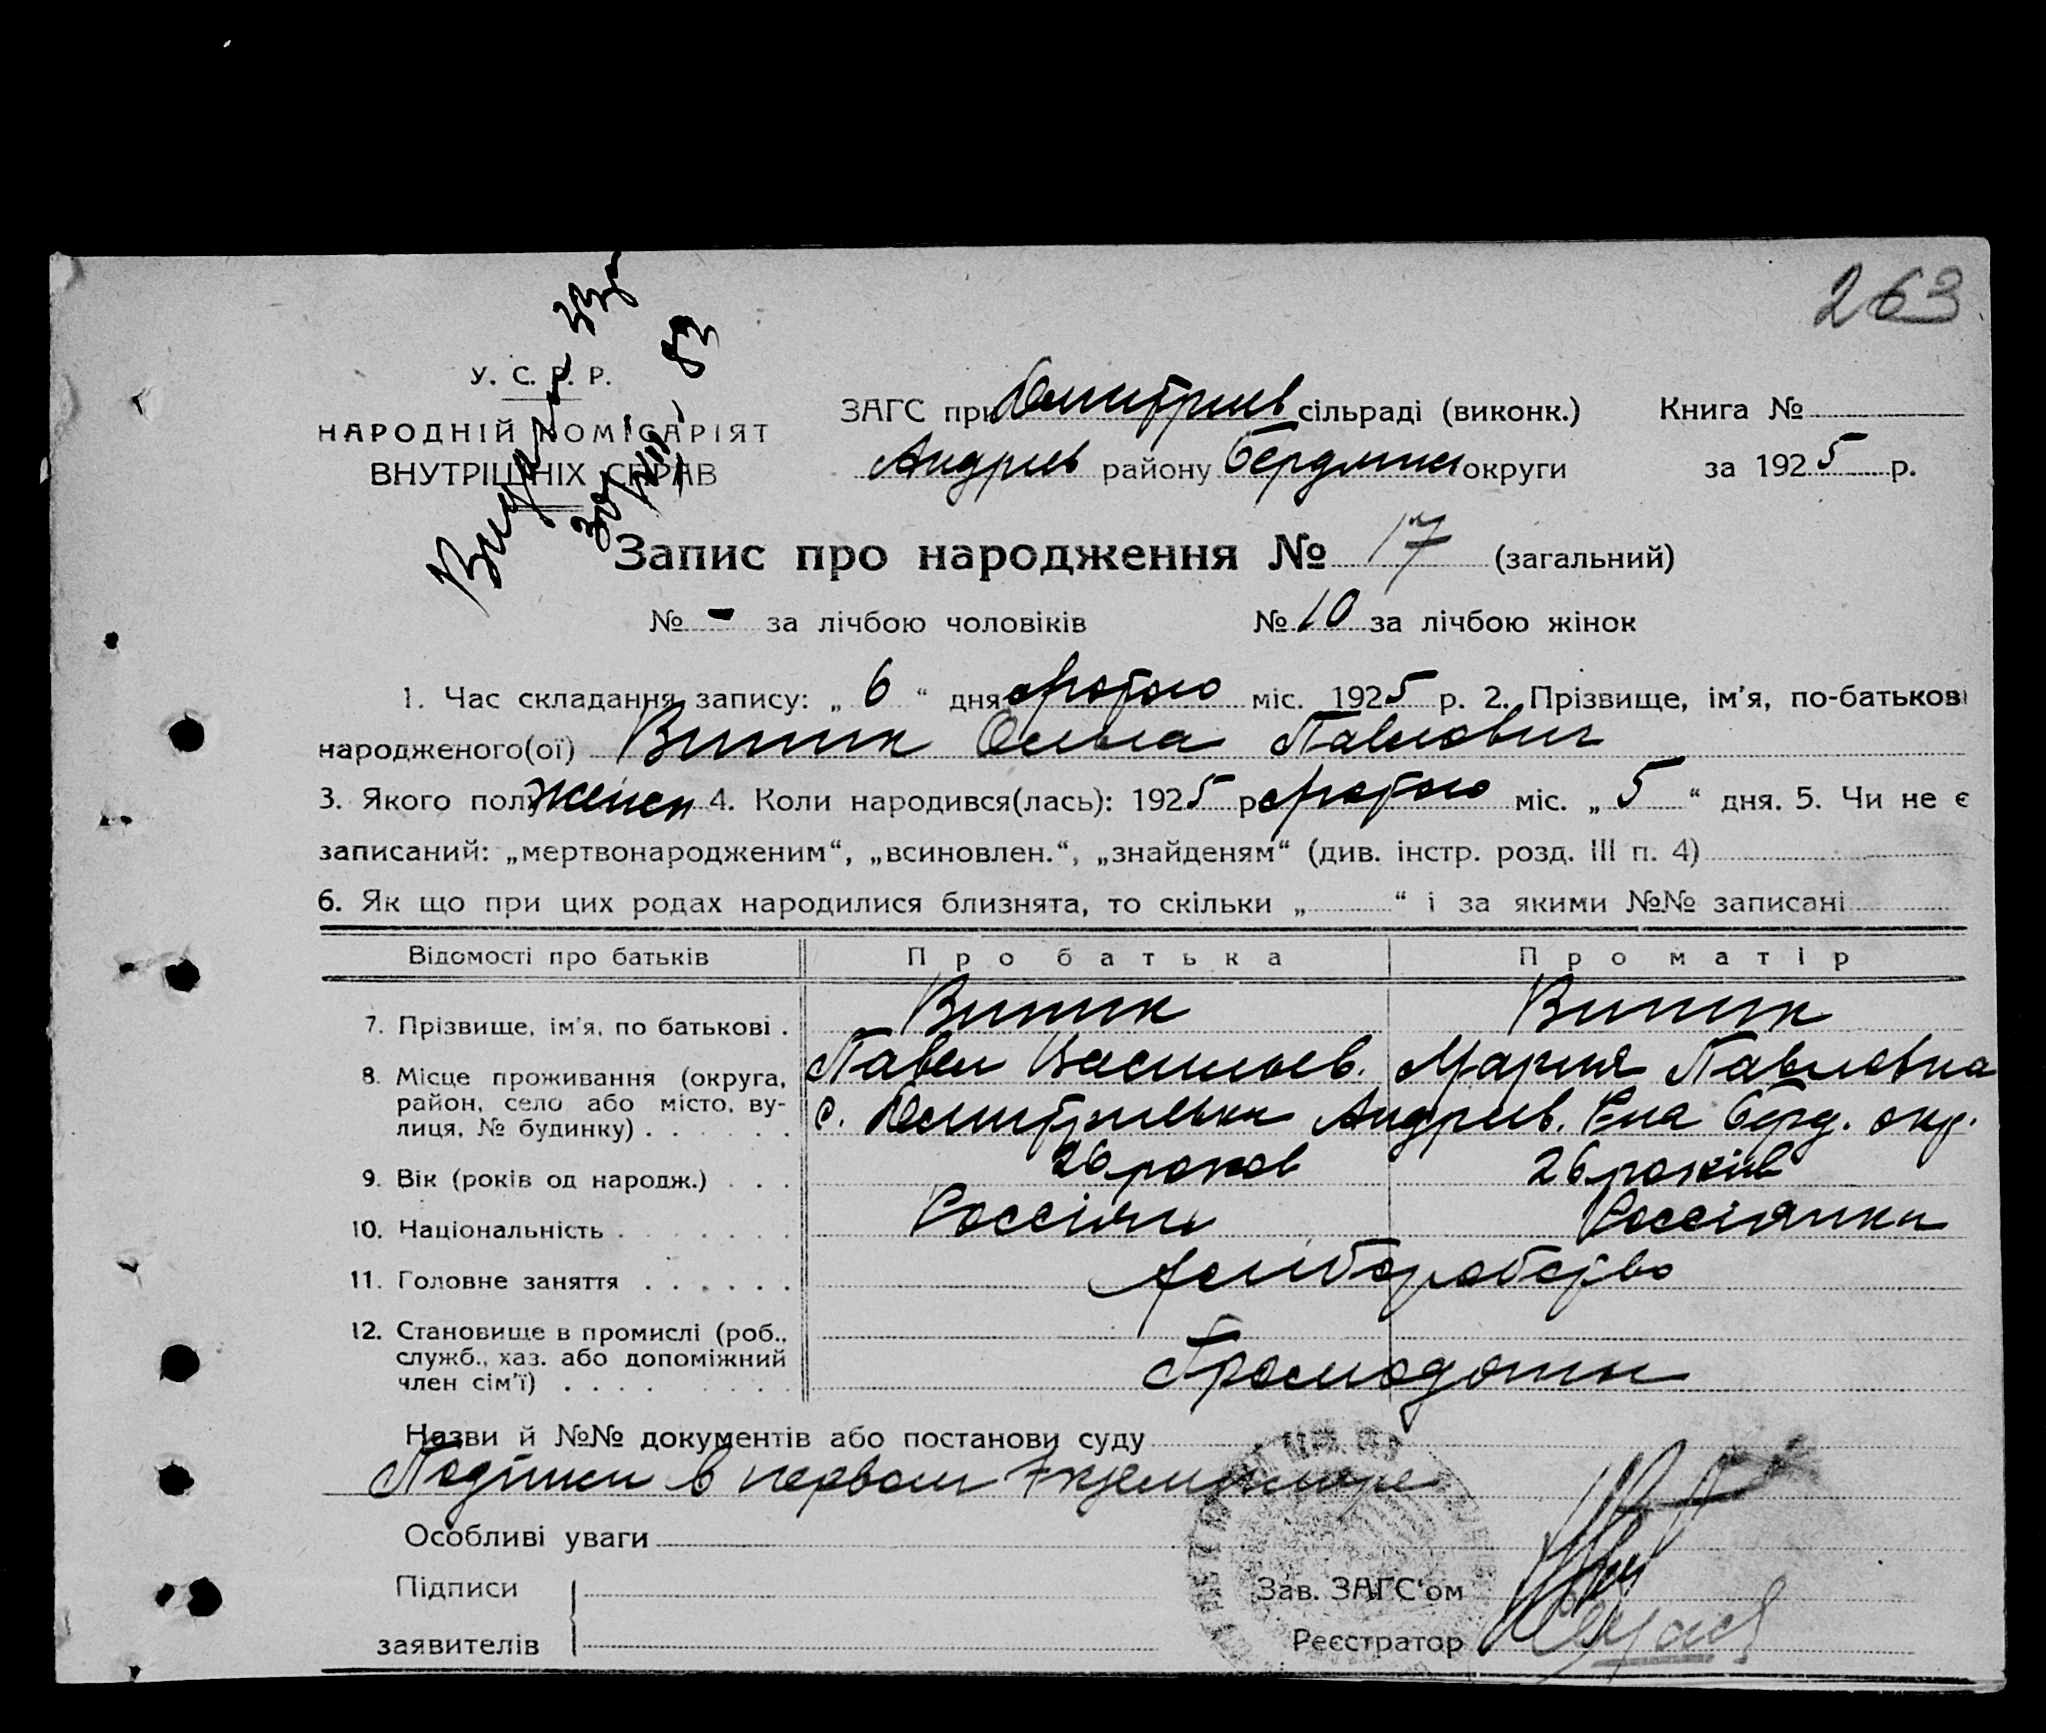 263
У. С. Р. Р.
НАРОДНІЙ КОМІСАРІЯТ
ВНУТРІШНІХ СПРАВ
ЗАГС при Дмитриев сільраді (виконк.) Книга №
Андриев району Бердянск округи за 1925 р.
Запис про народження № 17 (загальний)
№ - за лічбою чоловіків № 10 за лічбою жінок
1. Час складання запису: „ 6 “ дня лютого міс. 1925 р. 2. Прізвище, ім'я, по-батькові
народженого(ої) Ольга Павлович
3. Якого полу женск 4. Коли народився(лась): 1925 р лютого міс. „ 5 “ дня. 5. Чи не є
записаний: „мертвонародженим“, „всиновлен.“, „знайденям“ (див. інстр. розд. III п. 4)
6. Як що при цих родах народилися близнята, то скільки „ “ і за якими №№ записані
Відомості про батьків Про батька Про матір
7. Прізвище, ім'я, по батькові .
8. Місце проживання (округа, Павел Васильев. Мария Павловна
район, село або місто, ву-
лиця, № будинку) . с. Дмитриевка Андриев. Р-на Берд. окр.
9. Вік (років од народж.) . . . 26 роков 26 років
10. Національність . Россіян Россіянка
11. Головне заняття . хліборобство
12. Становище в промислі (роб.,
служб., хаз. або допоміжний
член сім'ї) . Громадяни
Назви й №№ документів або постанови суду
Подписи в первом экземпляре
Особливі уваги
Підписи
заявителів
Зав. ЗАГС'ом
Реєстратор